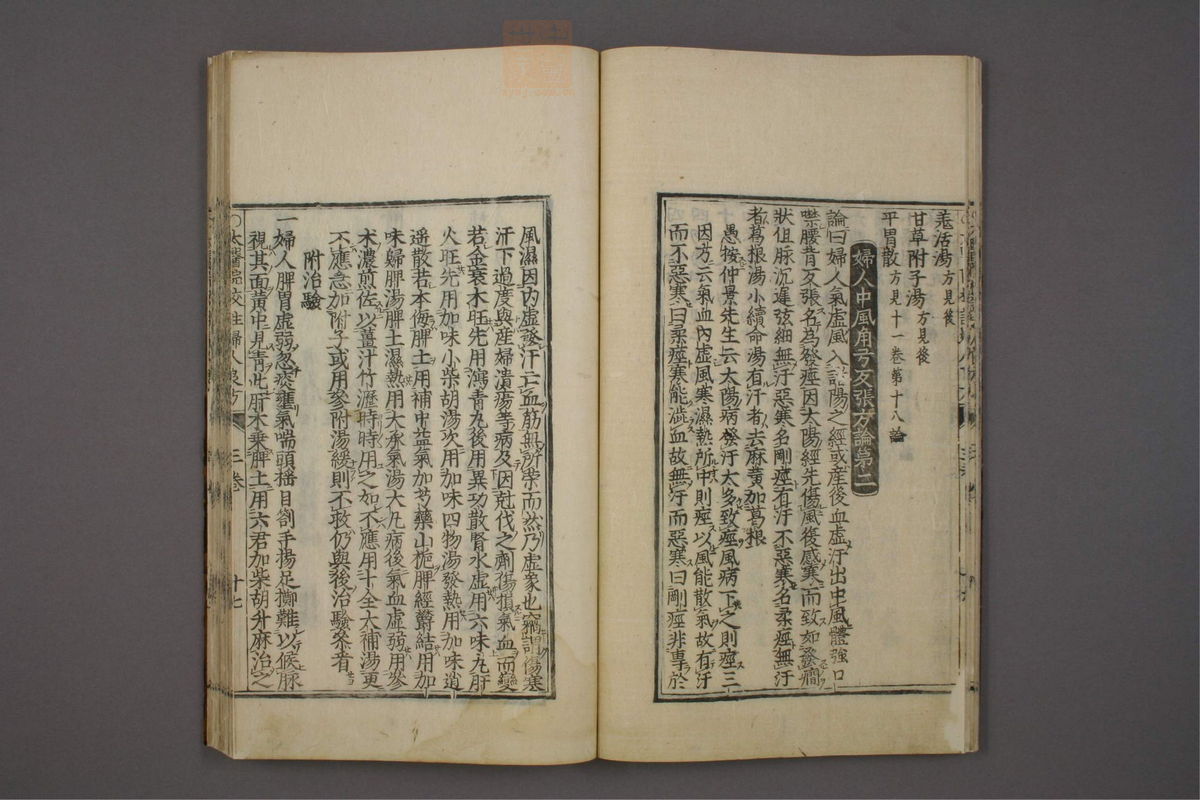 羗活湯方見後
甘草附子湯方見後
平胃散方見十一卷第十八論
婦人中風角弓反張方論第二
論曰婦人氣虛風入諸陽之經或産後血虛汗出中風體強口
噤腰背反張名為發痙因太陽經先傷風後感寒而致如發癎
狀但脉沉遲弦細無汗惡寒名剛痙有汗不惡寒名柔痙無汗
者葛根湯小續命湯有汗者去麻黄加葛根
愚按仲景先生云太陽病發汗太多致痙風病下之則痙三
因方云氣血內虛風寒濕熱所中則痙以風能散氣故有汗
而不惡寒曰柔痙寒能澁血故無汗而惡寒曰剛痙非專於
風濕因內虛發汗亡血筋無所榮而然乃虛象也竊謂傷寒
汗下過度與産婦潰瘍等病及因尅伐之劑傷損氣血而變
若金衰木旺先用瀉青丸後用異功散腎水虛用六味丸肝
火旺先用加味小柴胡湯次用加味四物湯發熱用加味逍
遥散若木侮脾土用補中益氣加芍藥山梔脾經欝結用加
味歸脾湯脾土濕熱用大承氣湯大凡病後氣血虛弱用參
术濃煎佐以薑汁竹瀝時時用之如不應用十全大補湯更
不應急加附子或用參附湯緩則不救仍與後治驗參看
附治驗
一婦人脾胃虛弱忽痰壅氣喘頭摇目劄手揚足擲難以候脉
視其面黄中見青此肝木乗脾土用六君加柴胡升麻治之
太醫院校註婦人良方 三卷 十七